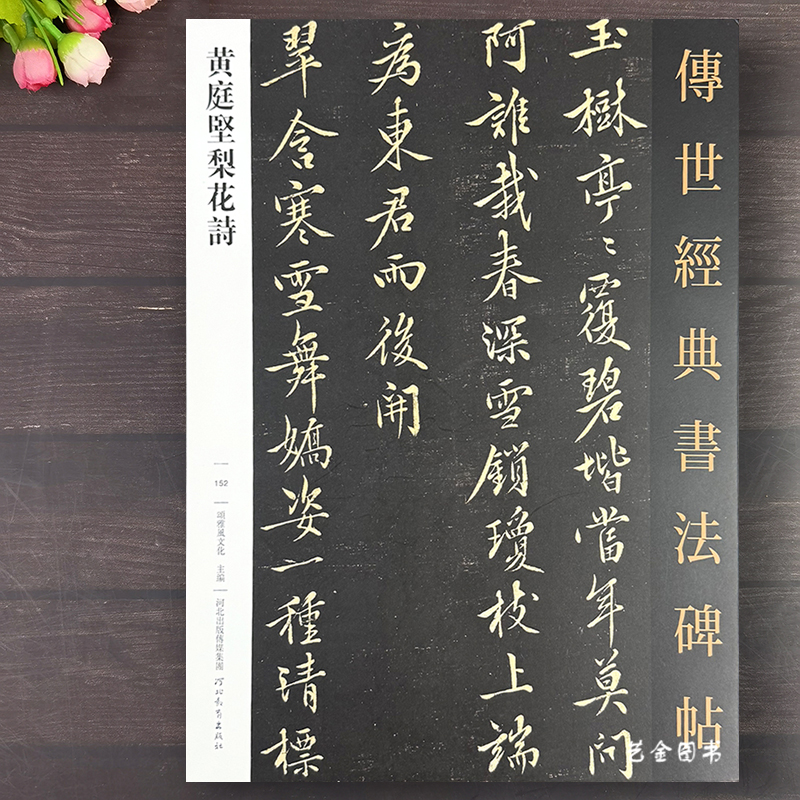 傳世經典書法碑帖
玉樹亭〻覆碧堦當年莫问
阿誰栽春深雪鎖瓊枝上端
為東君雨後開
翠含寒雪舞嬌姿一種清標
黄庭堅梨花詩
152
頌雅風文化 主編
河北出版傳媒集團
河北教育出版社
艺金图书